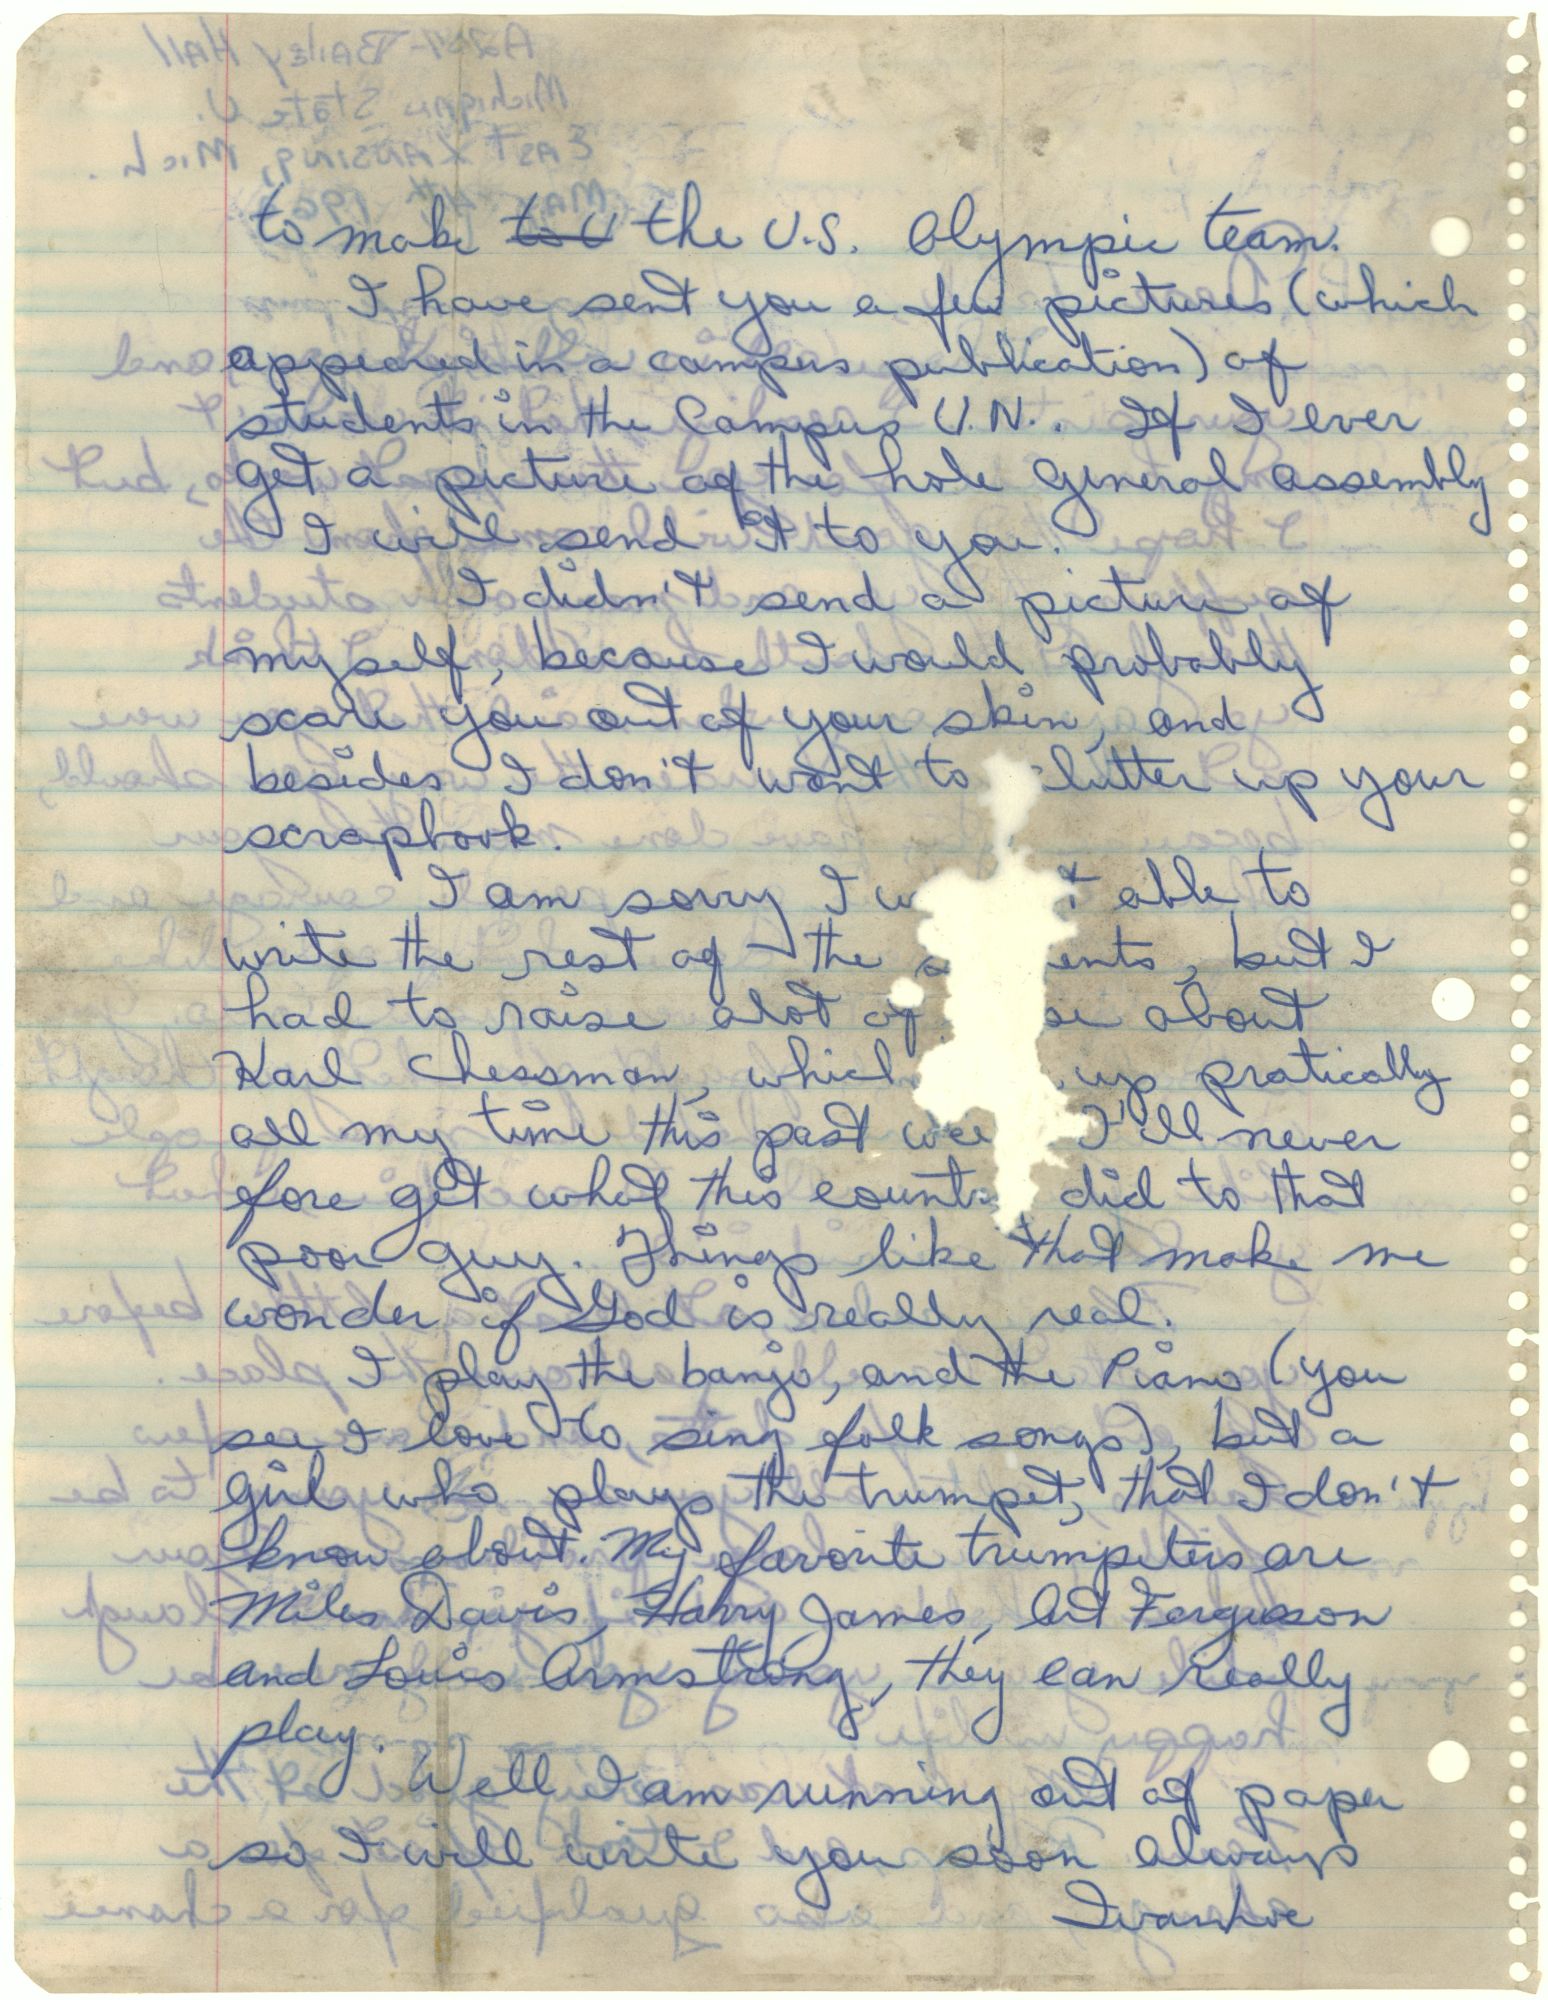 to make ~~to U~~ the U.S. Olympic team.
I have sent you a few pictures (which
appeared in a campus publication) of
students in the Campus U.N.. If I ever
get a picture of the hole general assembly
I will send it to you.
I didn't send a picture of
myself, because I would probably
scare you out of your skin, and
besides I don't want to clutter up your
scrapbook.
I am sorry I w t able to
write the rest of the s ents, but I
had to raise alot of se about
Karl Chessman, which up pratically
all my time this past wee I'll never
fore get what this countr did to that
poor guy. Things like that make me
wonder if God is really real.
I play the banjo, and the Piano (you
see I love to sing folk songs), but a
girl who plays the trumpet, that I don't
know about. My favorite trumpeters are
Miles Davis, Harry James, Art Ferguson
and Louis Armstrong, they can really
play.
Well I am running out of paper
so I will write you soon always
Ivanhoe